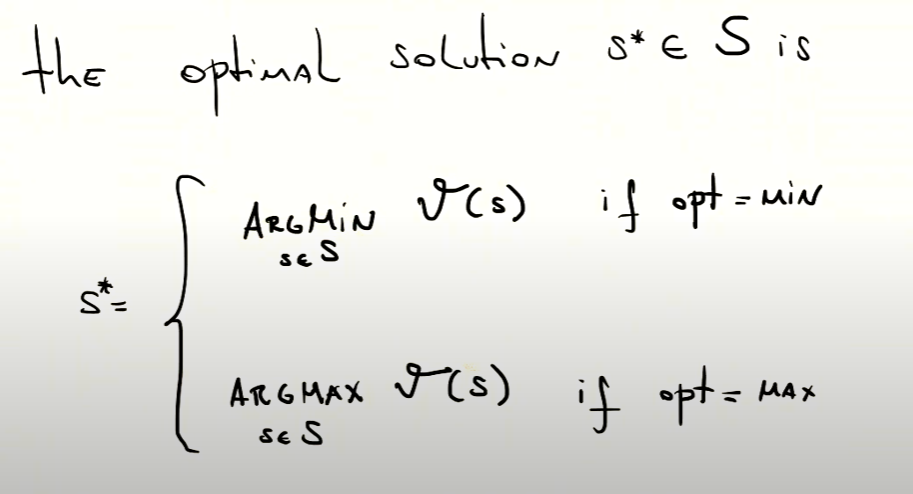 the optimal solution s* ∈ S is
ARGMIN v(s) if opt = MIN
s∈S
s* =
ARGMAX v(s) if opt = MAX
s∈S